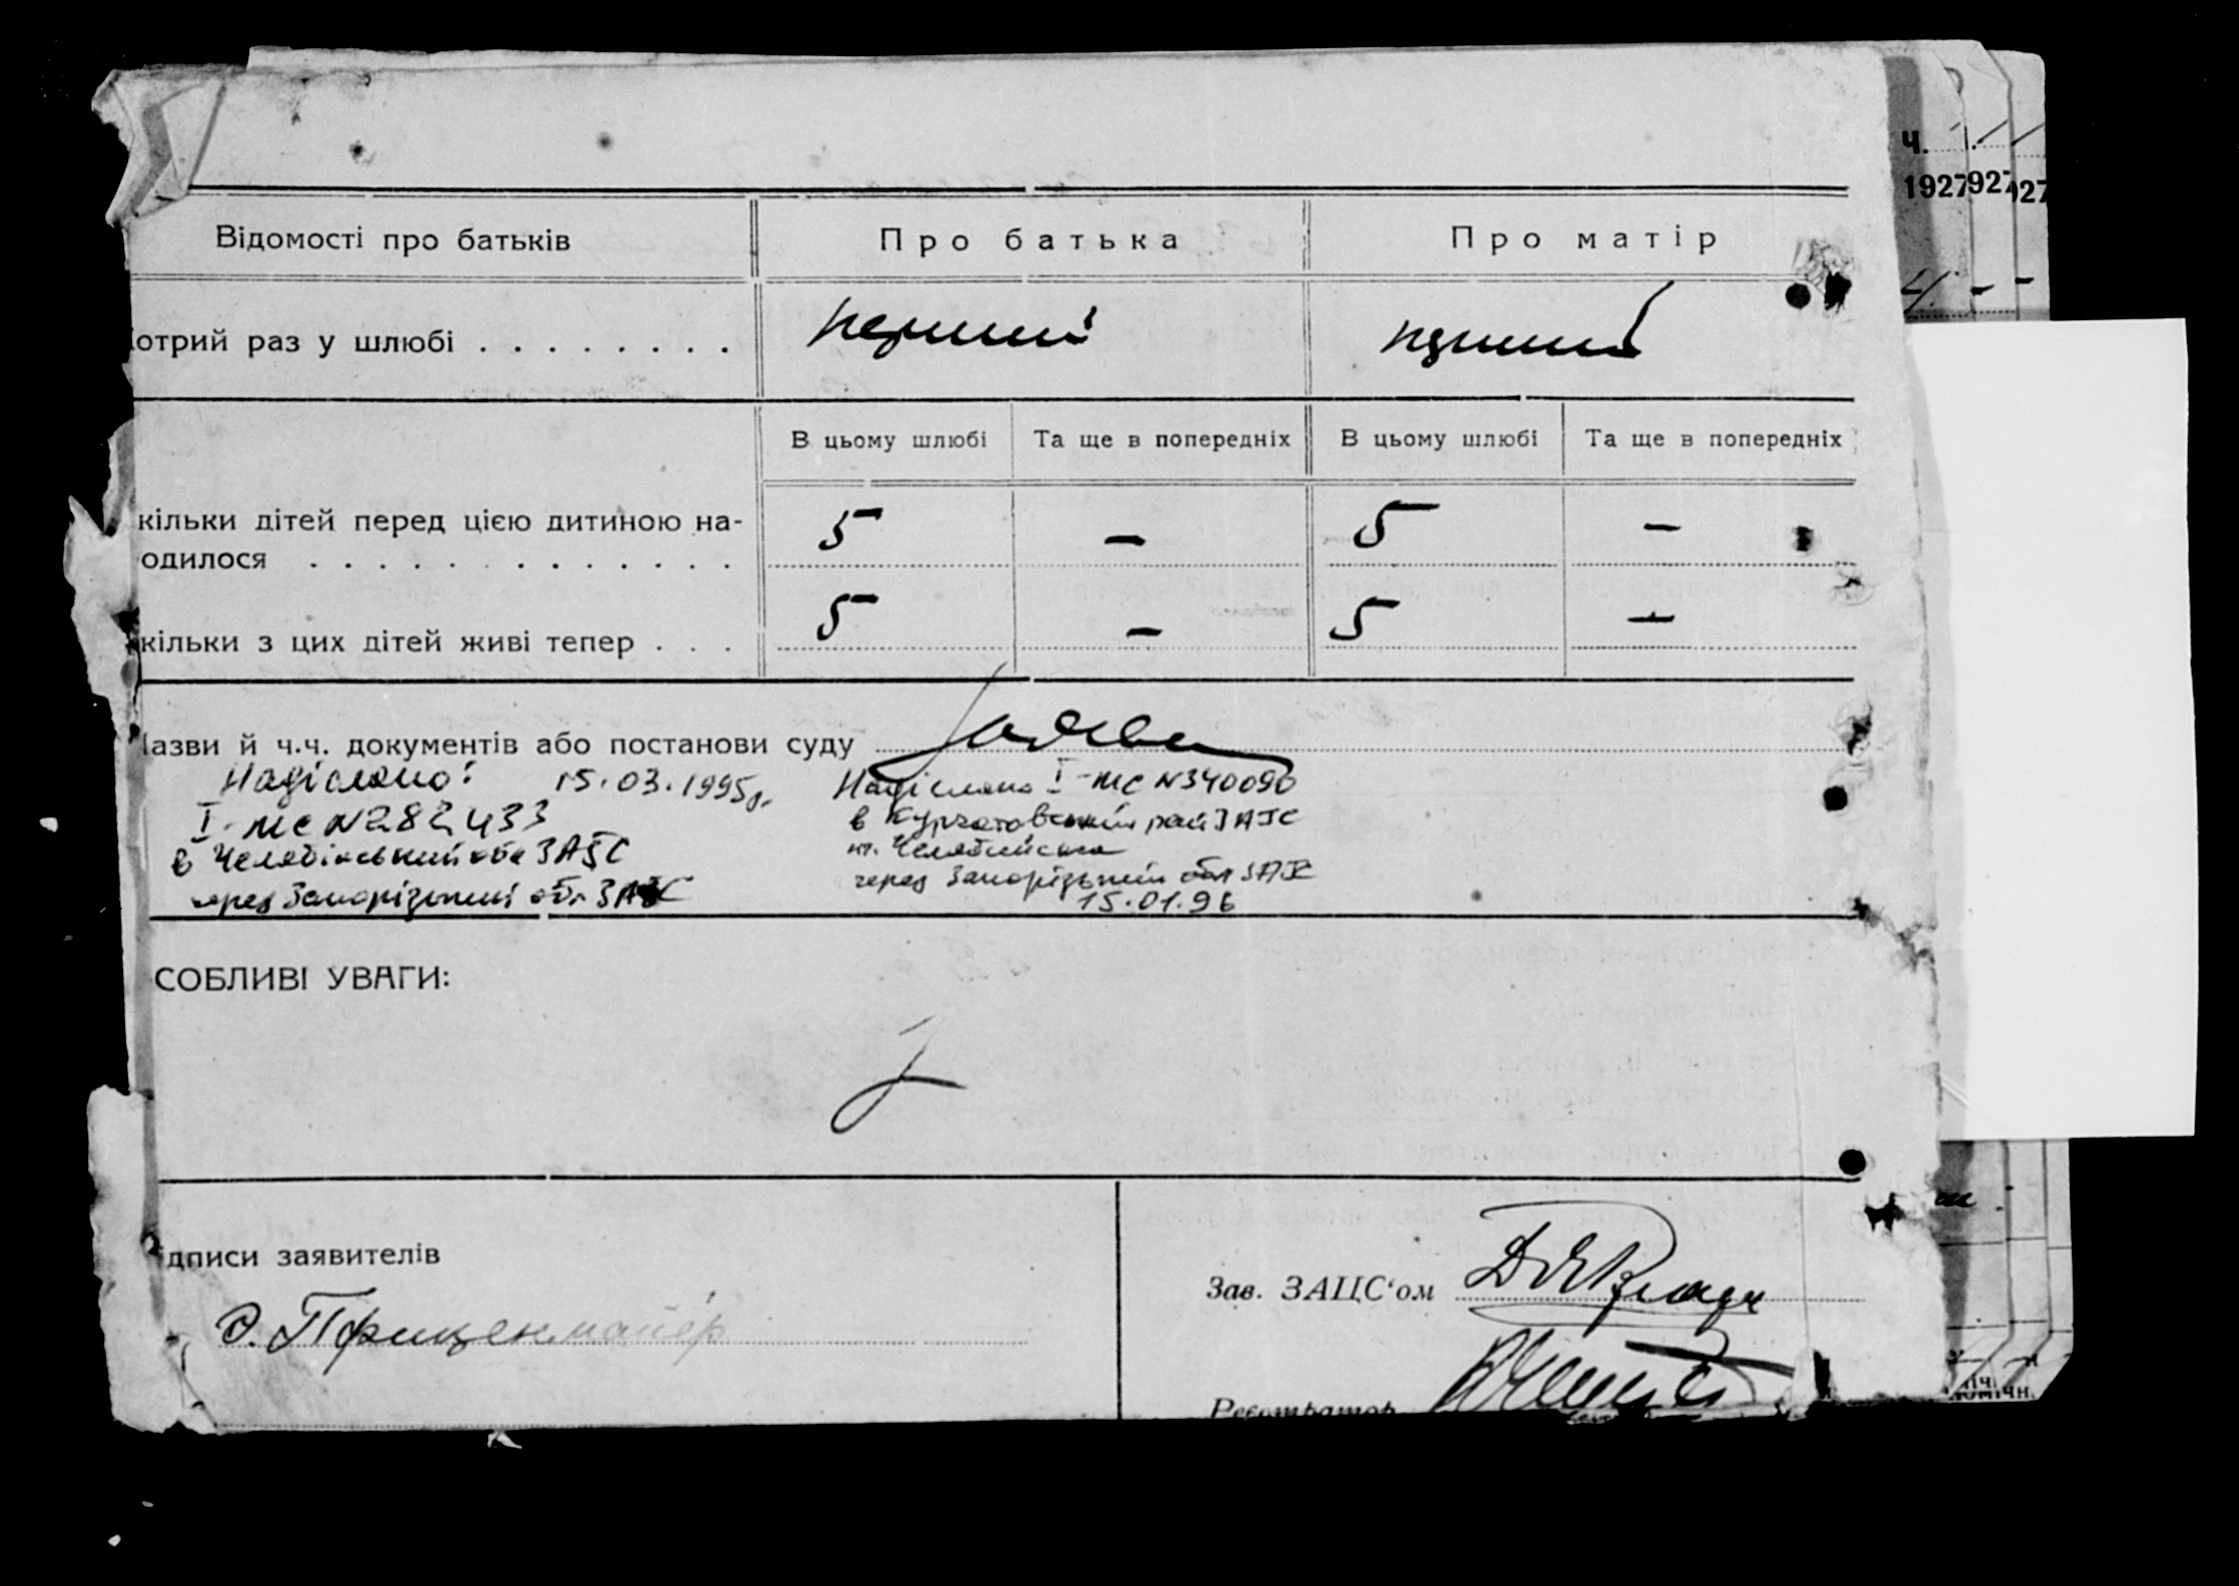 Ч.
1927 927 927
Відомості про батьків Про батька Про матір
отрий раз у шлюбі . . . . . . . . перший перший
В цьому шлюбі Та ще в попередніх В цьому шлюбі Та ще в попередніх
кільки дітей перед цією дитиною на-
одилося . . . . . . . . . . . . . 5 – 5 –
кільки з цих дітей живі тепер . . . 5 – 5 –
азви й ч.ч. документів або постанови суду
Надіслано: 15.03.1995р.
І-ЖС N282433
в Челябінський обл ЗАГС
через Запорізький обл ЗАГС
Надіслано І-ЖС N340090
в Курчатовський рай ЗАГС
м. Челябинська
через Запорізький обл ЗАГС
15.01.96
СОБЛИВІ УВАГИ:
дписи заявителів
Зав. ЗАЦС‘ом
Реєстратор